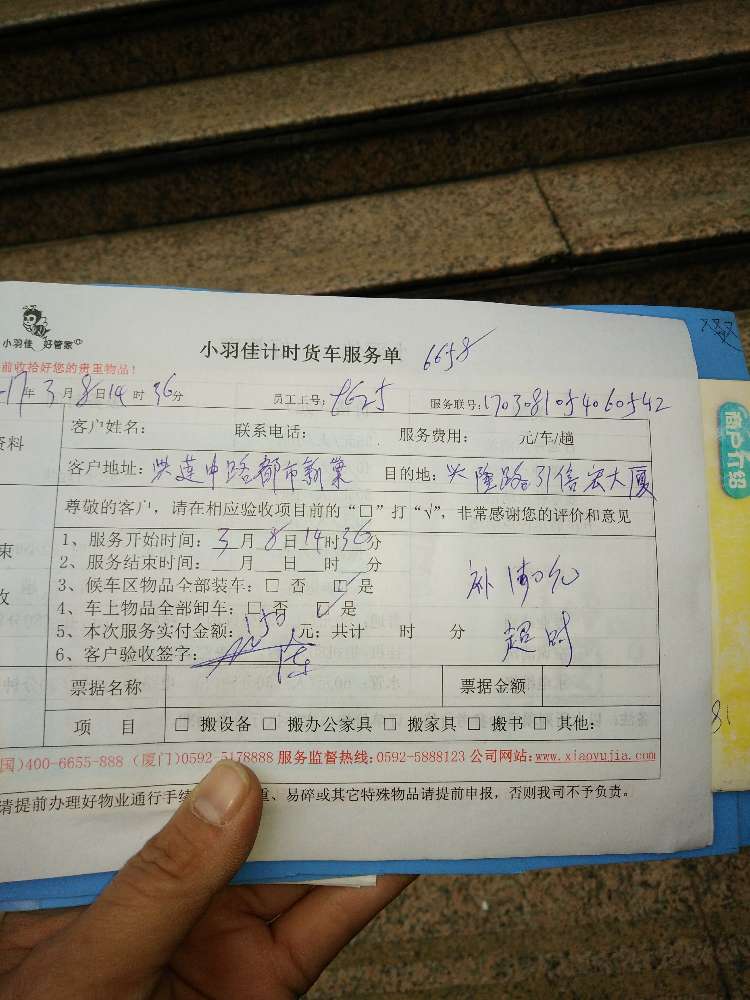 小羽佳 好管家
小羽佳计时货车服务单 6658
前收拾好您的贵重物品！
17年3月8日14时36分 员工工号：8625 服务联号：1703081054060542
资料
客户姓名： 联系电话： 服务费用： 元/车/趟
客户地址：洪莲中路都市新巢 目的地：兴隆路引信宏大厦
尊敬的客户，请在相应验收项目前的“□”打“√”，非常感谢您的评价和意见
1、服务开始时间：3月8日14时36分
2、服务结束时间：__月__日__时__分
3、候车区物品全部装车：□ 否 □ 是
4、车上物品全部卸车：□ 否 □ 是
5、本次服务实付金额：150元；共计 时 分
6、客户验收签字：
补 元
超时
束
收
票据名称 票据金额
项 目 □ 搬设备 □ 搬办公家具 □ 搬家具 □ 搬书 □ 其他：
国)400-6655-888 (厦门)0592-5178888 服务监督热线:0592-5888123 公司网站:www.xiaoyujia.com
请提前办理好物业通行手续 重、易碎或其它特殊物品请提前申报，否则我司不予负责。
商户介绍